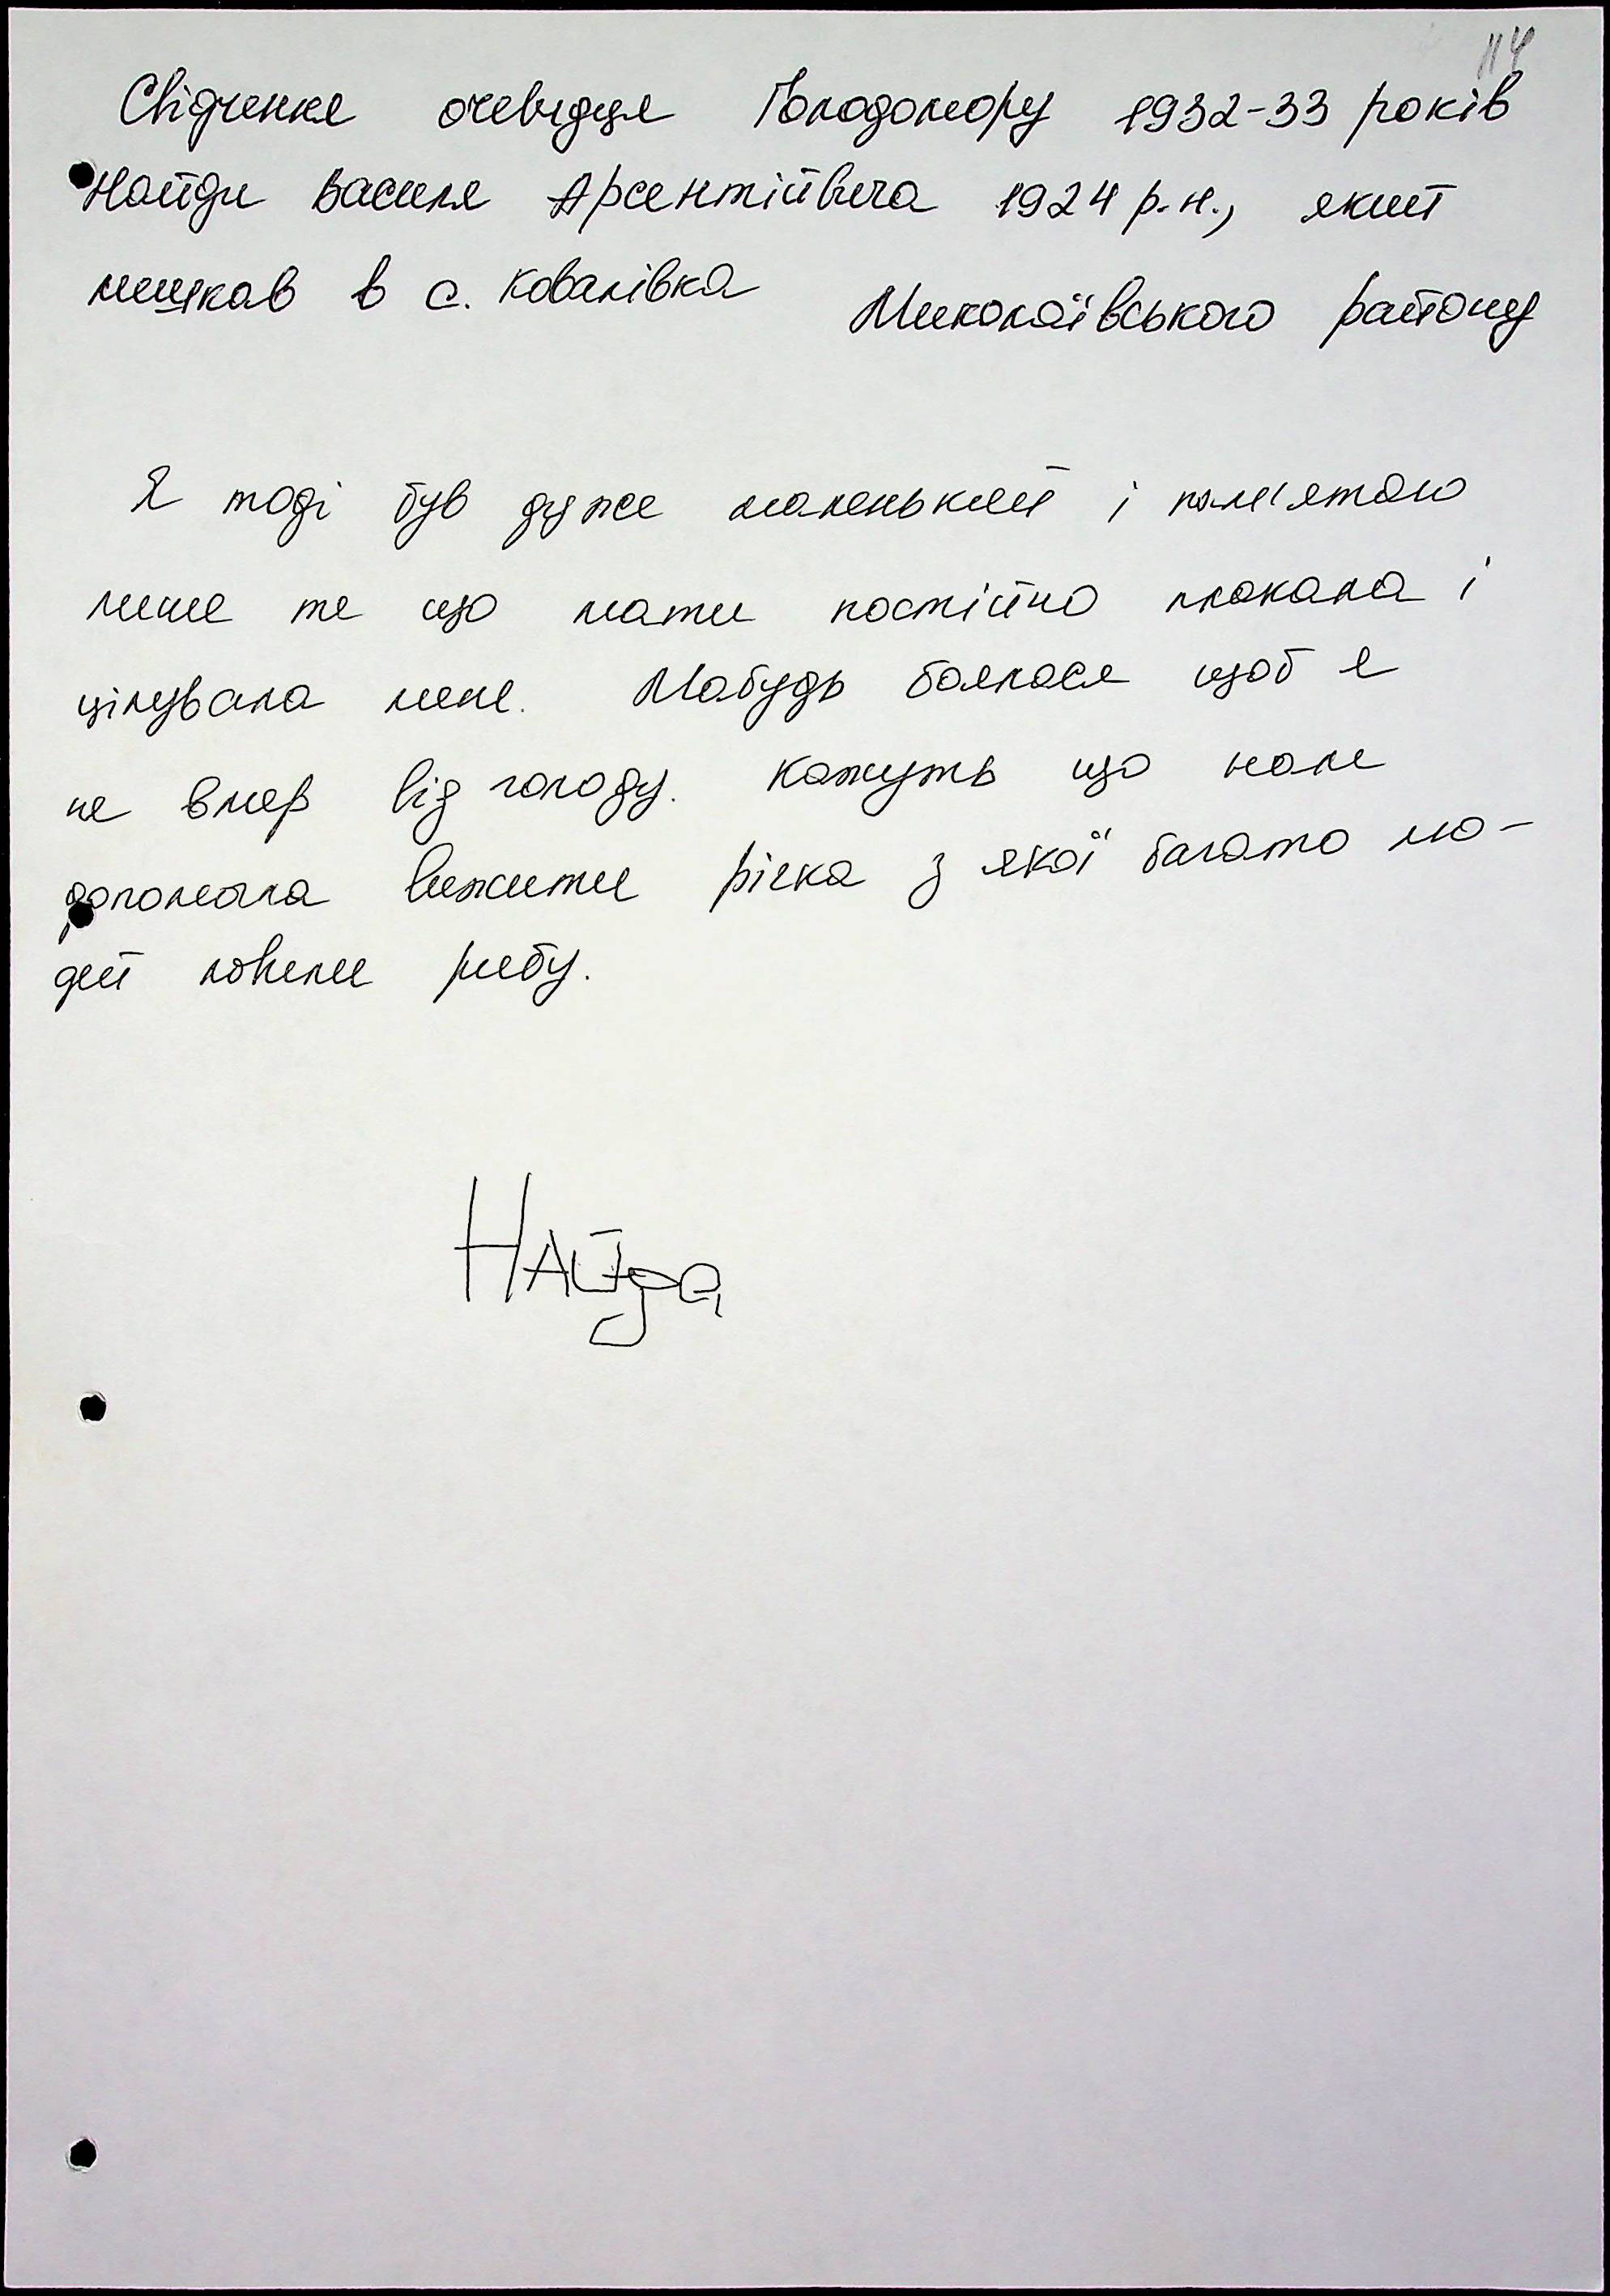 114
Свідчення очевидця Голодомору 1932-33 років
Найди Василя Арсентійвича 1924 р.н., який
мешкав в с. Ковалівка Миколаївського району
Я тоді був дуже маленький і пам'ятаю
лише те що мати постійно плакала і
цілувала мене. Мабудь боялася щоб я
не вмер від голоду. Кажуть що нам
допомогла вижити річка з якої багато лю-
дей ловили рибу.
Найда